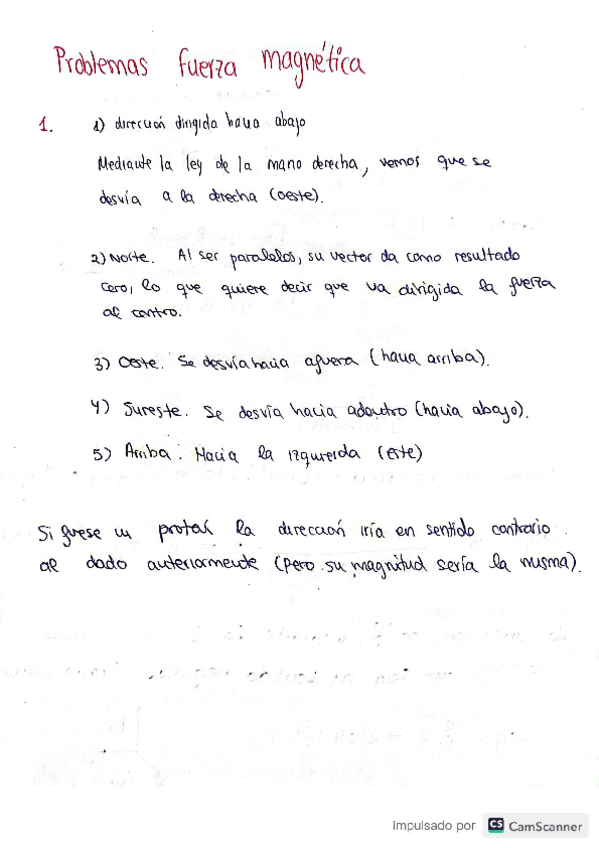 Problemas fuerza magnética
1. 1) dirección dirigida hacia abajo
Mediante la ley de la mano derecha, vemos que se
desvía a la derecha (oeste).
2) Norte. Al ser paralelos, su vector da como resultado
cero, lo que quiere decir que va dirigida la fuerza
al centro.
3) Oeste. Se desvía hacia afuera (hacia arriba).
4) Sureste. Se desvía hacia adentro (hacia abajo).
5) Arriba. Hacia la izquierda (este)
Si fuese un protón la dirección iría en sentido contrario
al dado anteriormente (pero su magnitud sería la misma).
Impulsado por CS CamScanner